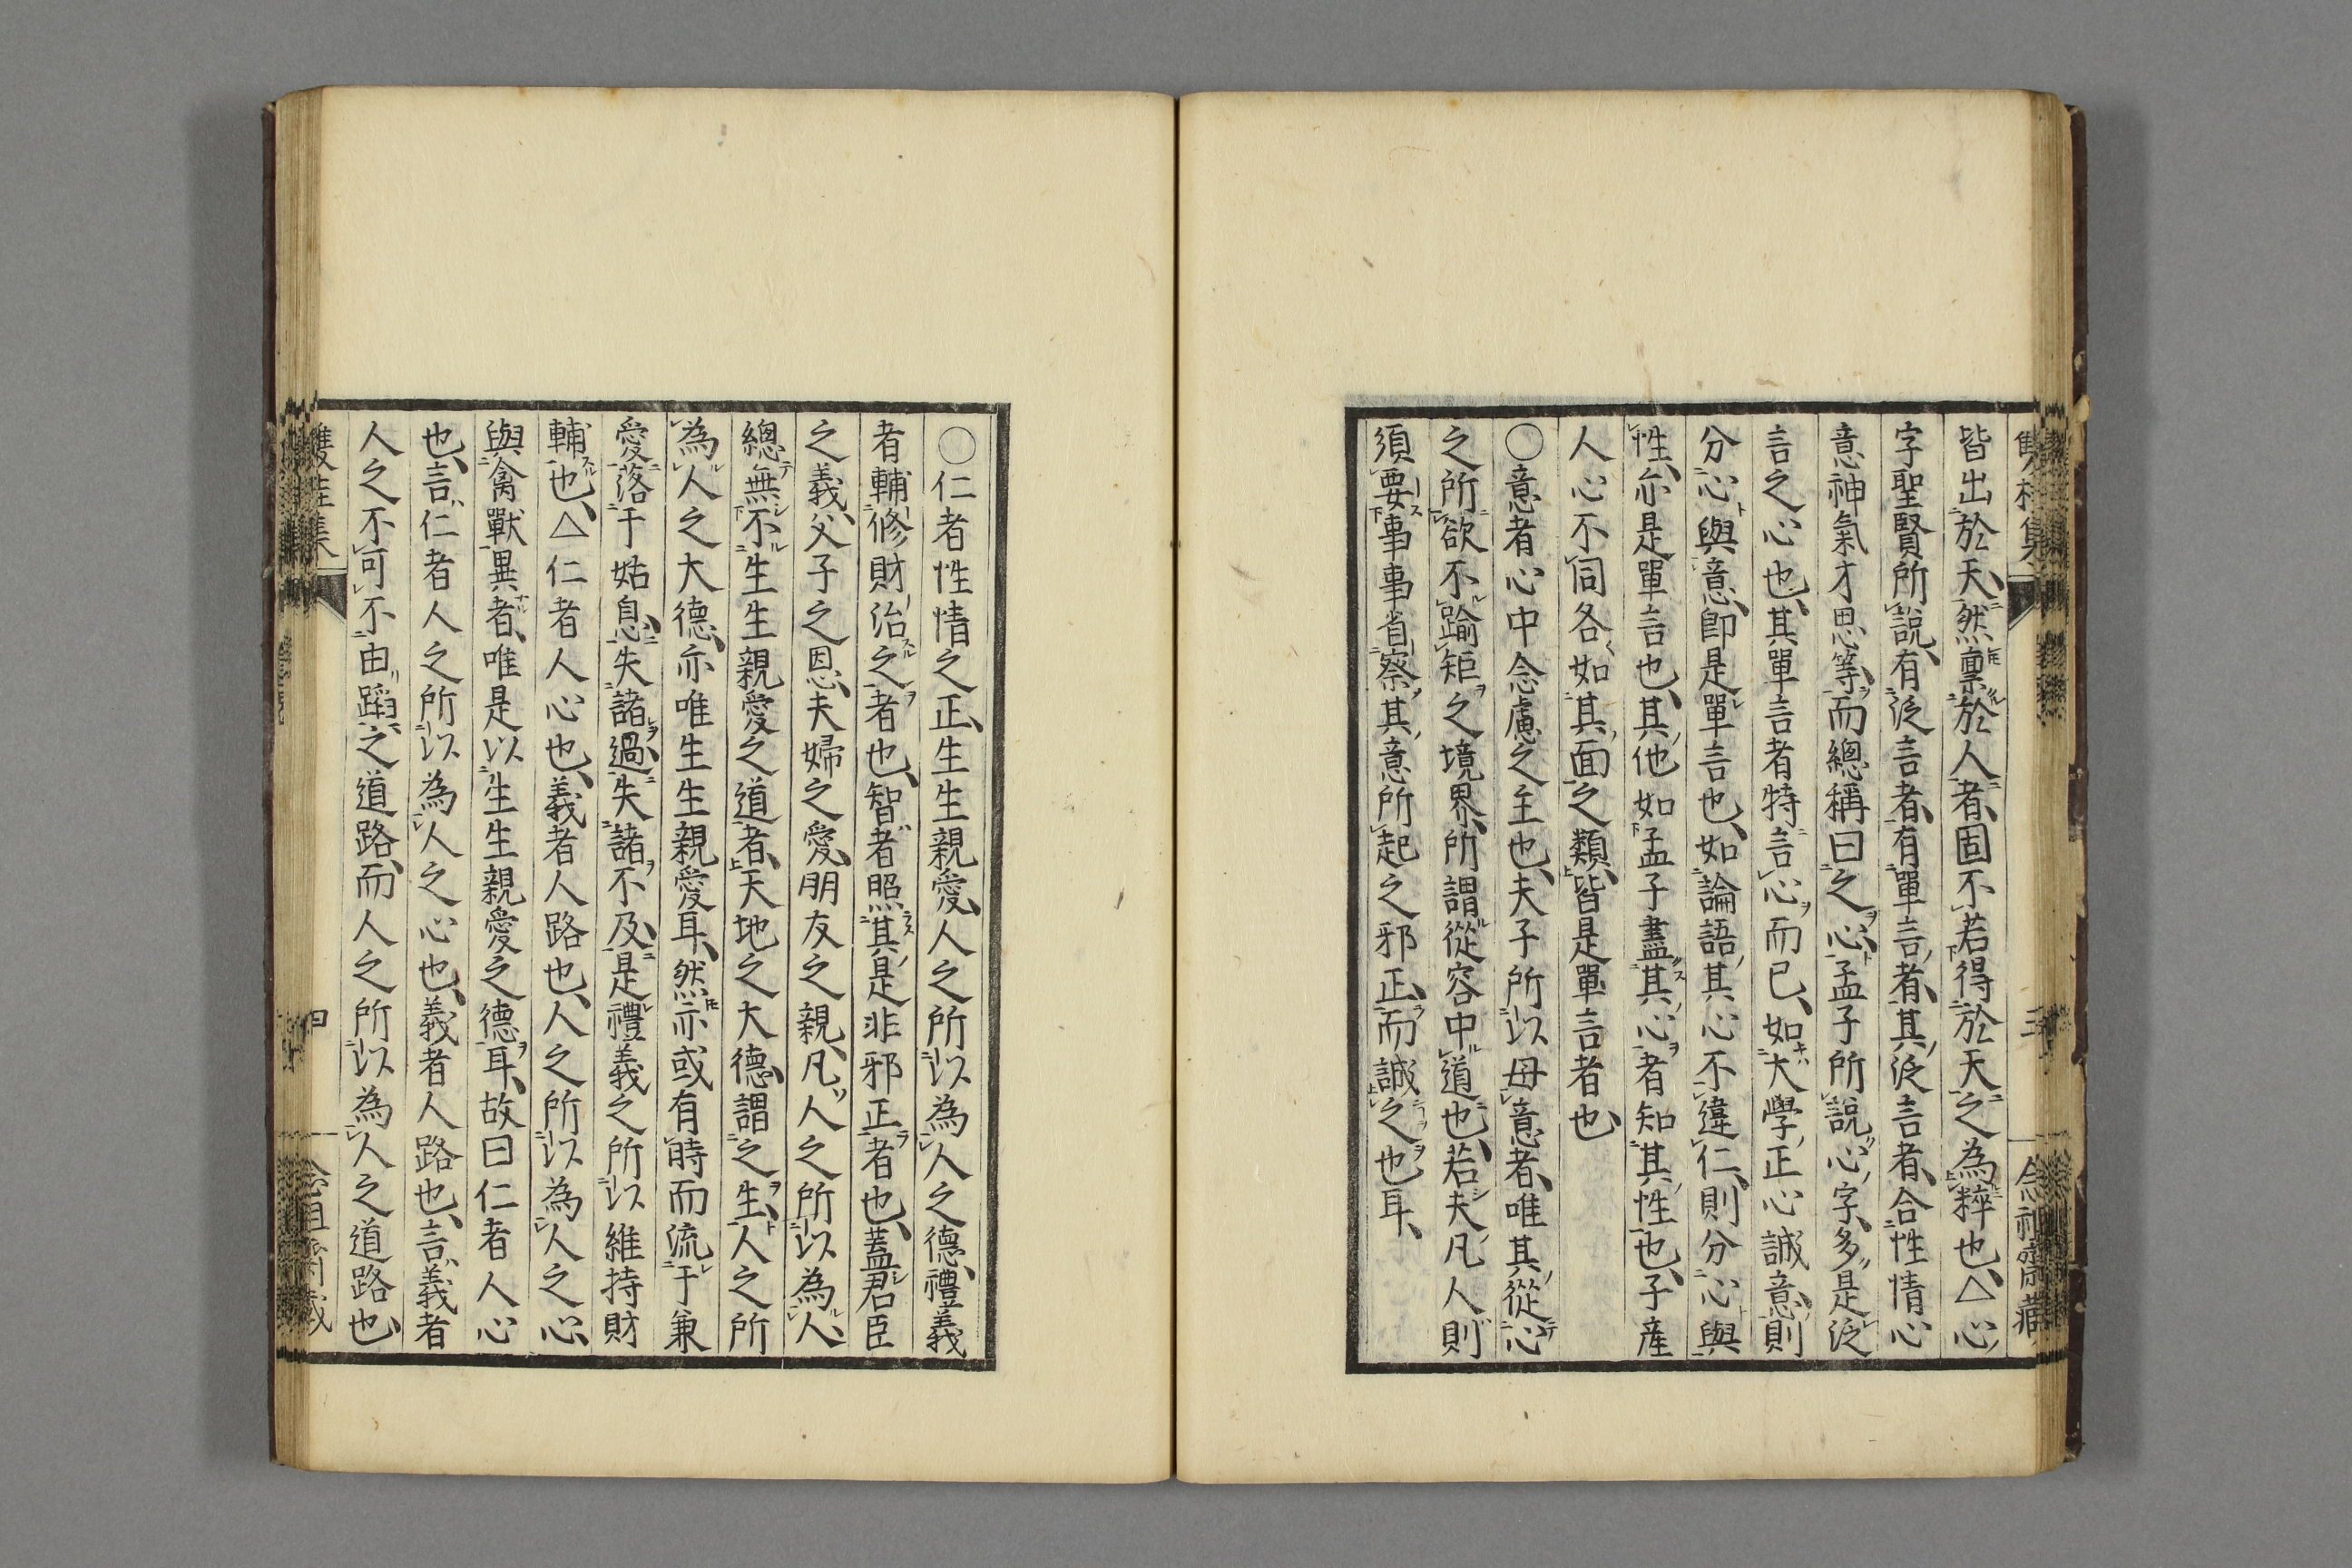 皆出於天、然稟於人者、固不若得於天之為粹也、△心
字聖賢所說、有泛言者、有單言者、其泛言者、合性情心
意神氣才思等、而總稱曰之心、孟子所說心字、多是泛
言之心也、其單言者特言心而已、如大學正心誠意、則
分心與意、即是單言也、如論語其心不違仁、則分心與
性、亦是單言也、其他如孟子盡其心者知其性也、子產
人心不同各如其面之類、皆是單言者也
〇意者心中念慮之主也、夫子所以毋意者、唯其從心
之所欲不踰矩之境界、所謂從容中道也、若夫凡人則
須要事事省察其意所起之邪正、而誠之也耳、
〇仁者性情之正、生生親愛、人之所以為人之德、禮義
者輔修財治之者也、智者照其是非邪正者也、蓋君臣
之義、父子之恩、夫婦之愛、朋友之親、凡人之所以為人、
總無不生生親愛之道者、天地之大德、謂之生、人之所
為人之大德、亦唯生生親愛耳、然亦或有時而流于兼
愛落于姑息、失諸過、失諸不及、是禮義之所以維持財
輔也、△仁者人心也、義者人路也、人之所以為人之心、
與禽獸異者、唯是以生生親愛之德耳、故曰仁者人心
也、言仁者人之所以為人之心也、義者人路也、言義者
人之不可不由蹈之道路、而人之所以為人之道路也、